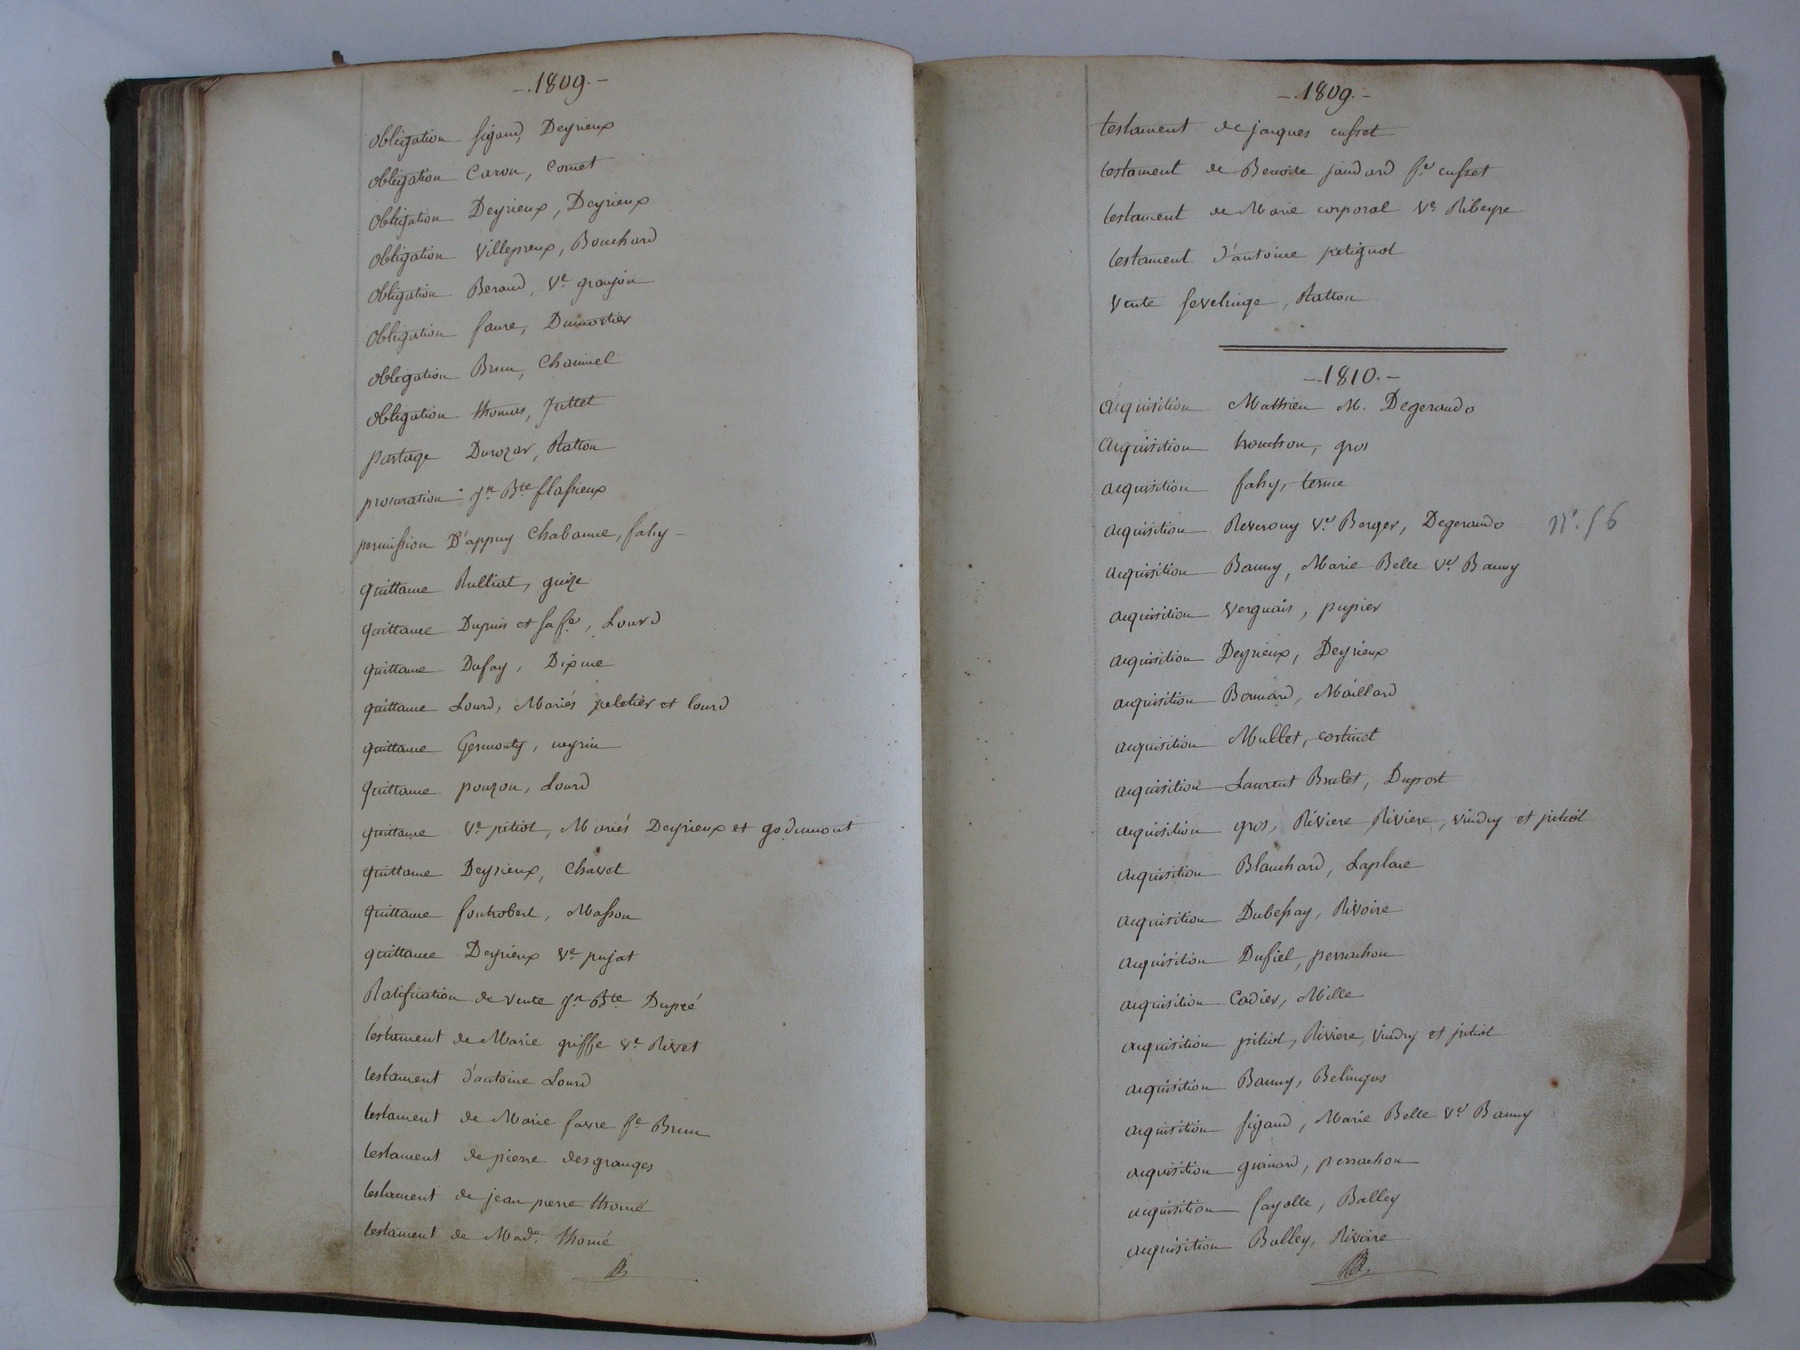 -. 1809. -
obligation sigaud, Deyrieux
obligation Caron, Comet
obligation Deyrieux, Deyrieux
obligation Villepreux, Bouchard
obligation Beraud, Ve granjon
obligation faure, Dumortier
obligation Brun, Chamuel
obligation thomas, Juttet
partage Durozar, Ratton
procuration Jn Bte flassieux
permission D'appuy Chabanne, fahy
quittance Rulliat, guize
quittance Dupuis et sa fe, Lourd
quittance Dufay, Dixme
quittance Lourd, Mariés peletier et lourd
quittance Germonty, neyrin
quittance pouzou, Lourd
quittance Ve pitiot, Mariés Deyrieux et godumont
quittance Deyrieux, Chavet
quittance fontrobert, Masson
quittance Deyrieux Ve pujat
Ratification de vente Jn Bte Dupré
testament de Marie griffe Ve Rivet
testament d'antoine Lourd
testament de Marie favre fe Brun
testament de pierre desgranges
testament de jean pierre thomé
testament de Made thomé
-. 1809. -
testament de jacques cusset
testament de Benoite jandard fe cusset
testament de Marie corporal Ve Ribeyre
testament d'antoine petignot
Vente sevelinge, Ratton
-. 1810. -
acquisition Mathieu M. Degerando
acquisition tronchon, gros
acquisition fahy, terme
acquisition Reverony Ve Berger, Degerando n°. 56
acquisition Banny, Marie Belle Ve Banny
acquisition Verguais, pupier
acquisition Deyrieux, Deyrieux
acquisition Bonnard, Maillard
acquisition Mullet, costinet
acquisition Laurent Brulet, Duport
acquisition gros, Riviere Riviere, Vindry et pitiot
acquisition Blanchard, Laplace
acquisition Dubessay, Rivoire
acquisition Dufiel, perrachon
acquisition Cadier, Mille
acquisition pitiot, Riviere, Vindry et pitiot
acquisition Banny, Belingos
acquisition sigaud, Marie Belle Ve Banny
acquisition guinard, perrachon
acquisition fayolle, Balley
acquisition Balley, Rivoire